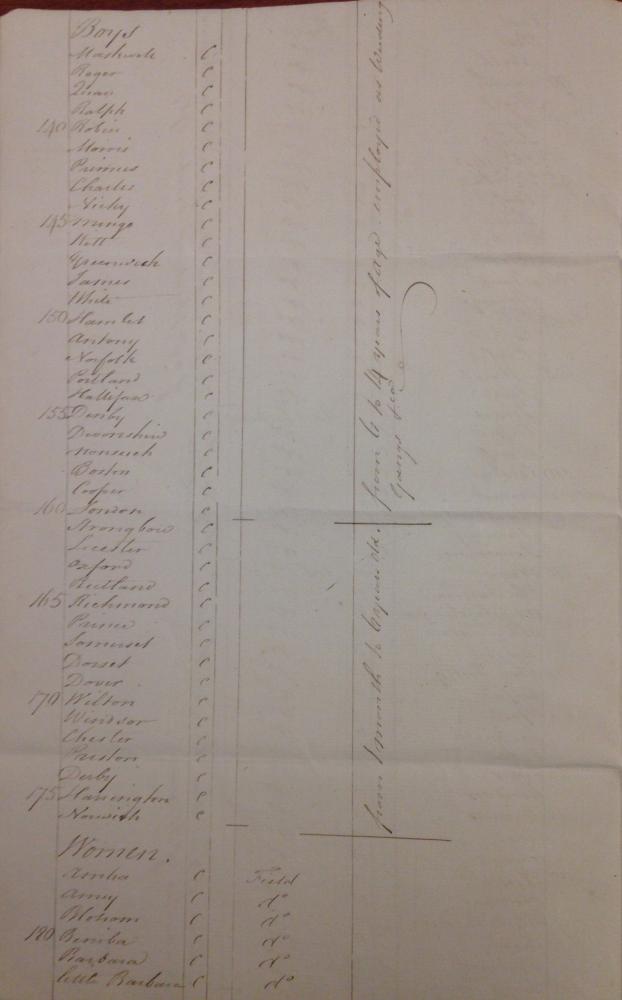 Boys
C
Roger C
Quaw C
Ralph C
140 Robin C
Morris C
Primus C
Charles C
Nicky C
145 Mingo C
Kitt C
Greenwich C
James C
White C
150 Hamlet C
Antony C
Norfolk C
Portland C
Hallifax C
155 Denby C
Devonshire C
Nonsuch C
Boston C
Cooper C
160 London C
Strongbow C
Leicester C
Oxford C
Rutland C
165 Richmond C
Prince C
Somerset C
Dorset C
Dover C
170 Wilton C
Windsor C
Chester C
Preston C
Derby C
175 Harrington C
Norwich C
from 6 to 14 years of age employed as weeding
Gangs &ca
from 1 month to 6 years old.
Women.
C Field
Amy C do
Blossom C do
180 Beniba C do
Barbara C do
little Barbara C do